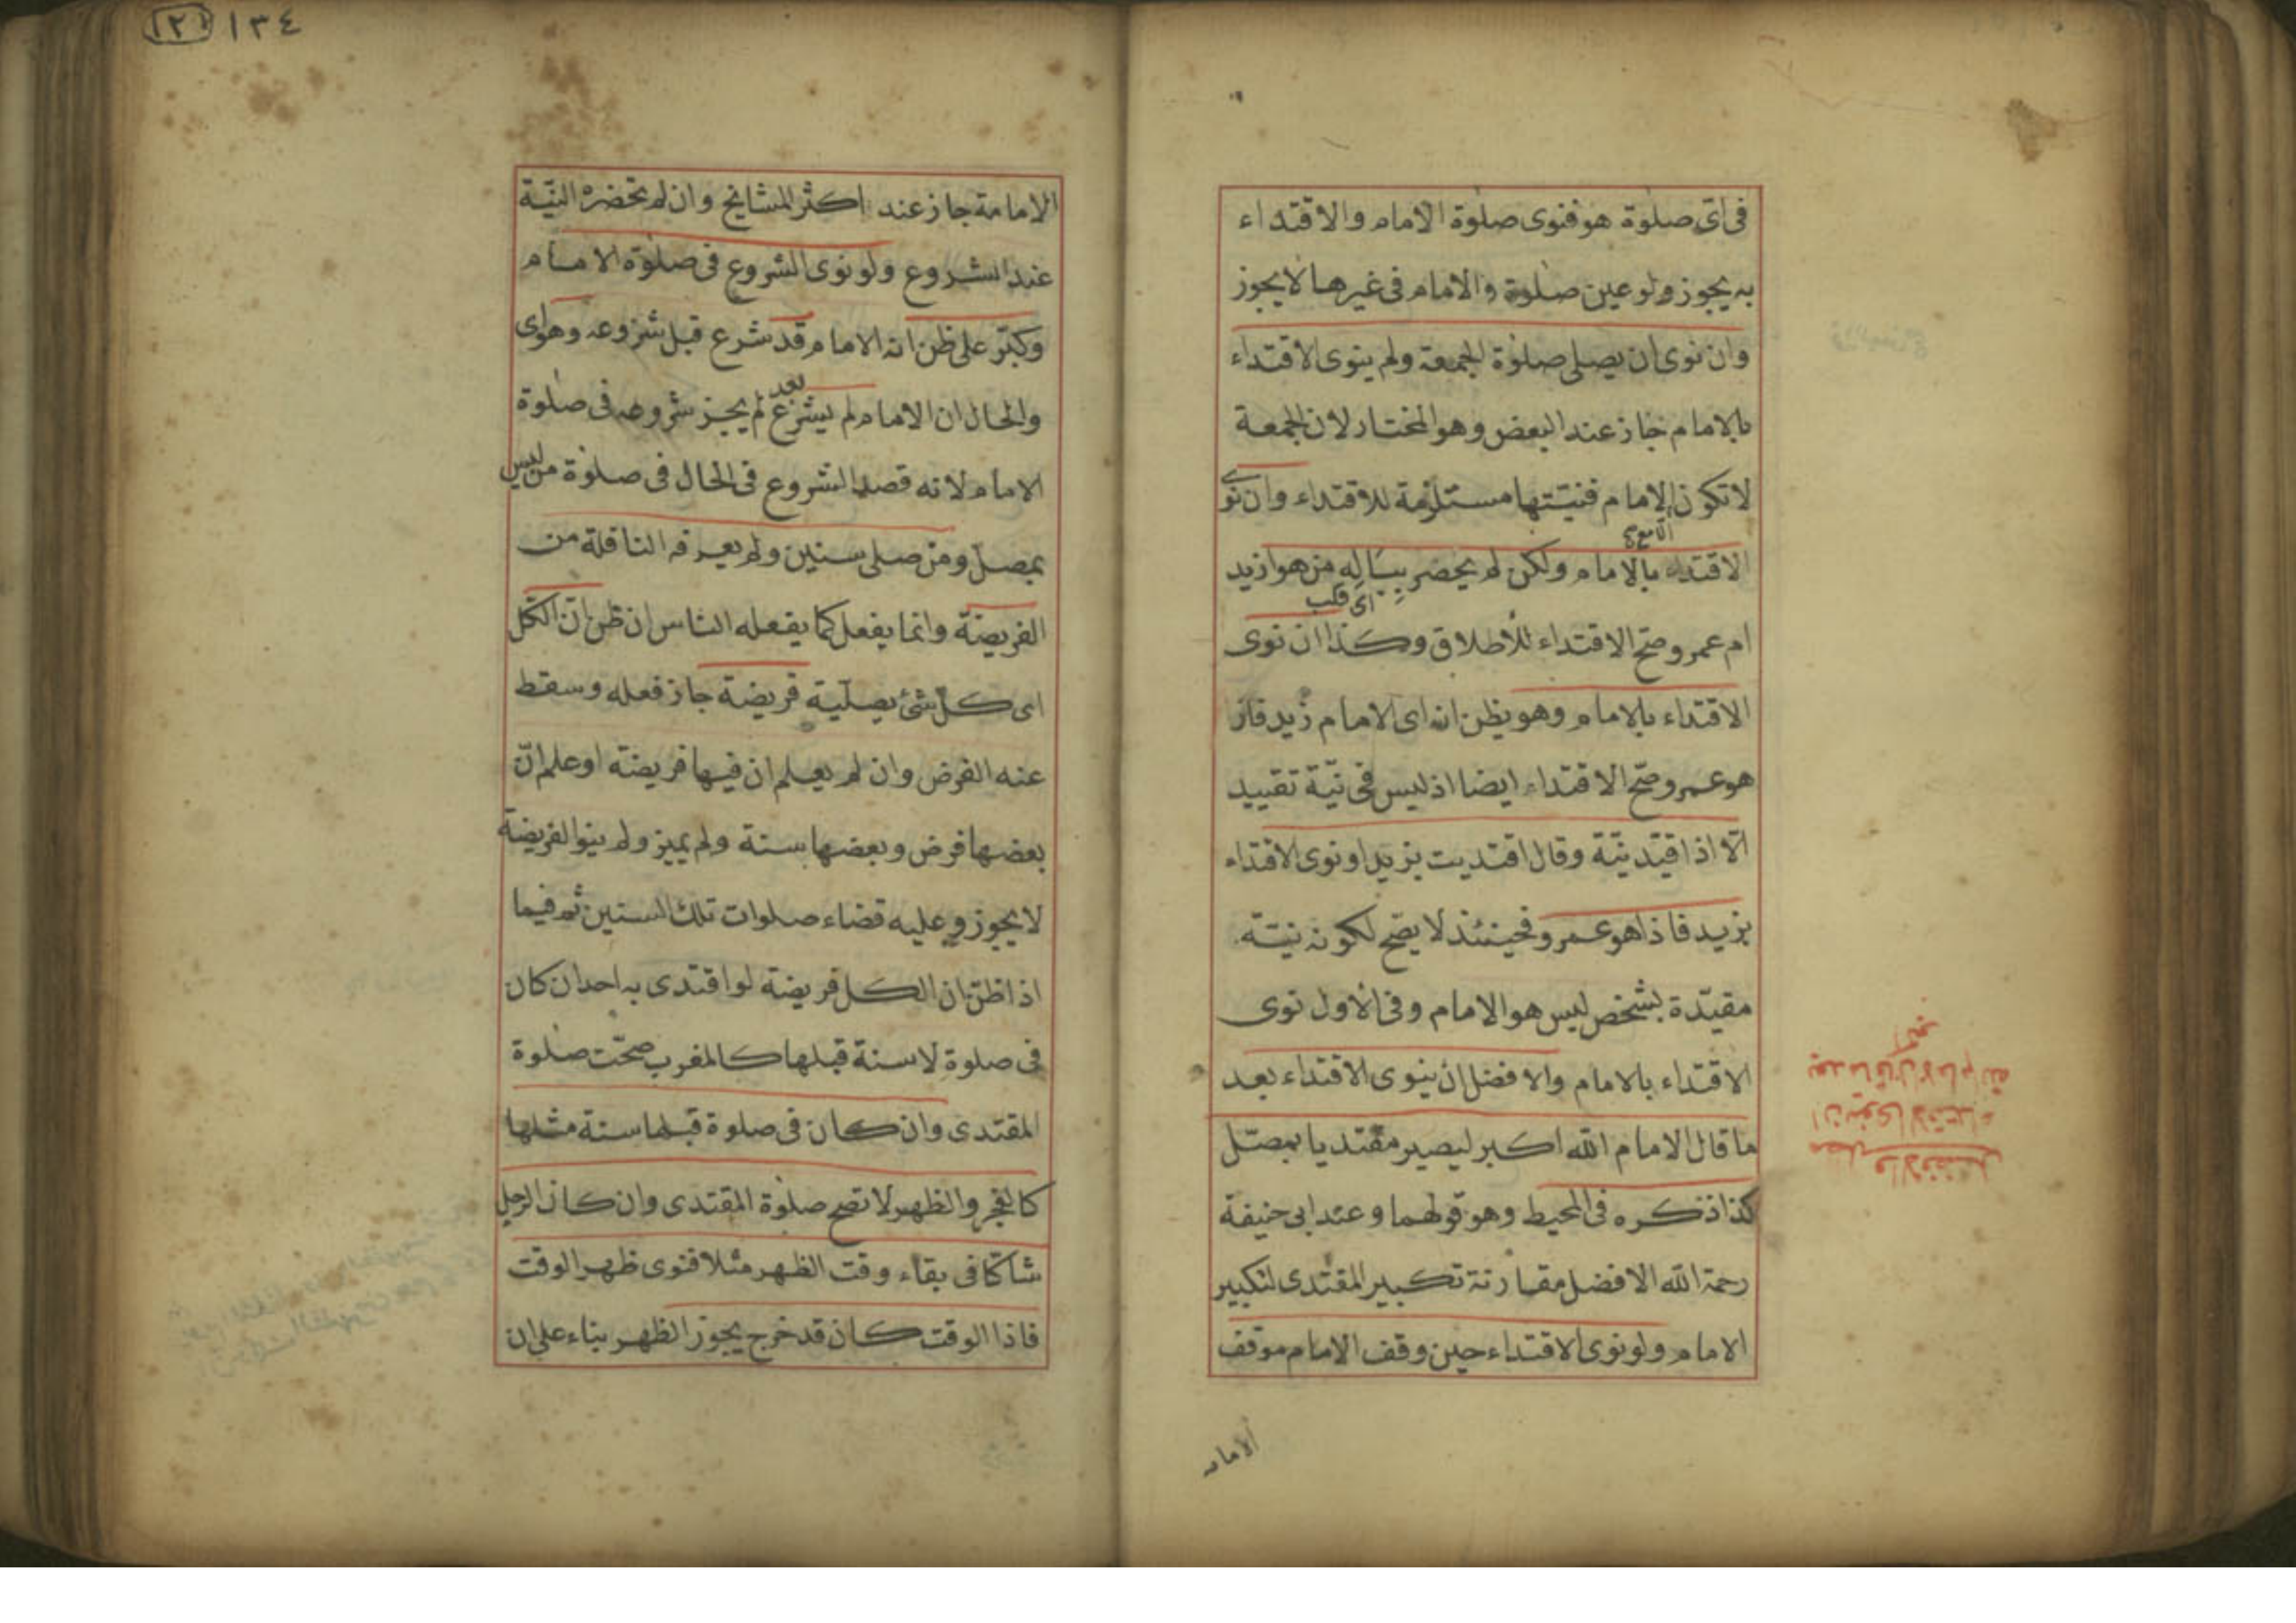 فى اى صلوة هو فنوى صلوة الامام والاقتداء
به يجوز ولو عين صلوة والامام فى غيرها لا يجوز
وان نوى ان يصلى صلوة الجمعة ولم ينوى الاقتداء
بالامام جاز عند البعض وهو المختار لان الجمعة
لا تكون الا مع الامام فنيتها مستلزمة للاقتداء وان نوى
الاقتداء بالامام ولكن لم يحضر بباله من هو ازيد
اى قلب
ام عمرو صح الاقتداء للاطلاق وكذا ان نوى
الاقتداء بالامام وهو يظن انه اى الامام زيد فاذا
هو عمرو صح الاقتداء ايضا اذ ليس فى نية تقييد
الا اذا قيد نية وقال اقتديت بزيد او نوى الاقتداء
بزيد فاذا هو عمرو فحينئذ لا يصح لكونه نيته
مقيدة بشخص ليس هو الامام وفى الاول نوى
الاقتداء بالامام والافضل ان ينوى الاقتداء بعد
ما قال الامام الله اكبر ليصير مقتديا بمصل
كذا ذكره فى المحيط وهو قولهما وعند ابى حنيفة
رحمة الله الافضل مقارنة تكبير المقتدى لتكبير
الامام ولو نوى الاقتداء حين وقف الامام موقف
الامامة
والافضل
ان ينوى الاقتداء
بعد ما قال الامام الله
اكبر
١٣٤
الامامة جاز عند اكثر المشايخ وان لم تحضره النية
عند الشروع ولو نوى الشروع فى صلوة الامام
وكبر على ظن انه الامام قد شرع قبل شروعه وهو اى
والحال ان الامام لم يشرع بعد لم يجز شروعه فى صلوة
الامام لانه قصد الشروع فى الحال فى صلوة من ليس
بمصل ومن صلى سنين ولم يعرفه النافلة من
الفريضة وانما يفعل كما يفعله الناس ان ظن ان الكل
اى كل شئ يصليه فريضة جاز فعله وسقط
عنه الفرض وان لم يعلم ان فيها فريضة او علم ان
بعضها فرض وبعضها سنة ولم يميز ولم ينو الفريضة
لا يجوز وعليه قضاء صلوات تلك السنين ثم فيما
اذا ظن ان الكل فريضة لو اقتدى به احد ان كان
فى صلوة لا سنة قبلها كالمغرب صحت صلوة
المقتدى وان كان فى صلوة قبلها سنة مثلها
كالفجر والظهر لا تصح صلوة المقتدى وان كان الرجل
شاكا فى بقاء وقت الظهر مثلا فنوى ظهر الوقت
فاذا الوقت كان قد خرج يجوز الظهر بناء على ان